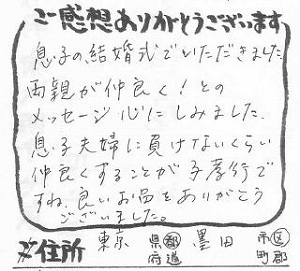 ご感想ありがとうございます
息子の結婚式でいただきました
両親が仲良く！との
メッセージ心にしみました。
息子夫婦に負けないくらい
仲良くすることが子孝行で
すね。良いお品をありがとう
ございました。
ご住所 東京 都道府県 墨田 市区町郡